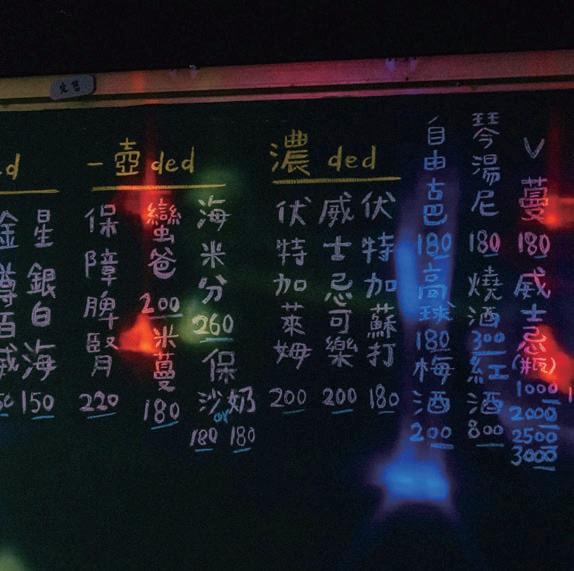 V蔓 180
威士忌(瓶) 1000 2000 2500 3000
琴湯尼 180
燒酒 300
紅酒 800
自由古巴 180
高球 180
梅酒 200
濃 ded
伏特加蘇打 180
威士忌可樂 200
伏特加萊姆 200
一壺 ded
海米分 260
保沙or奶 180 180
蠻爸 200
米蔓 180
保障脾腎 220
星銀白海 150